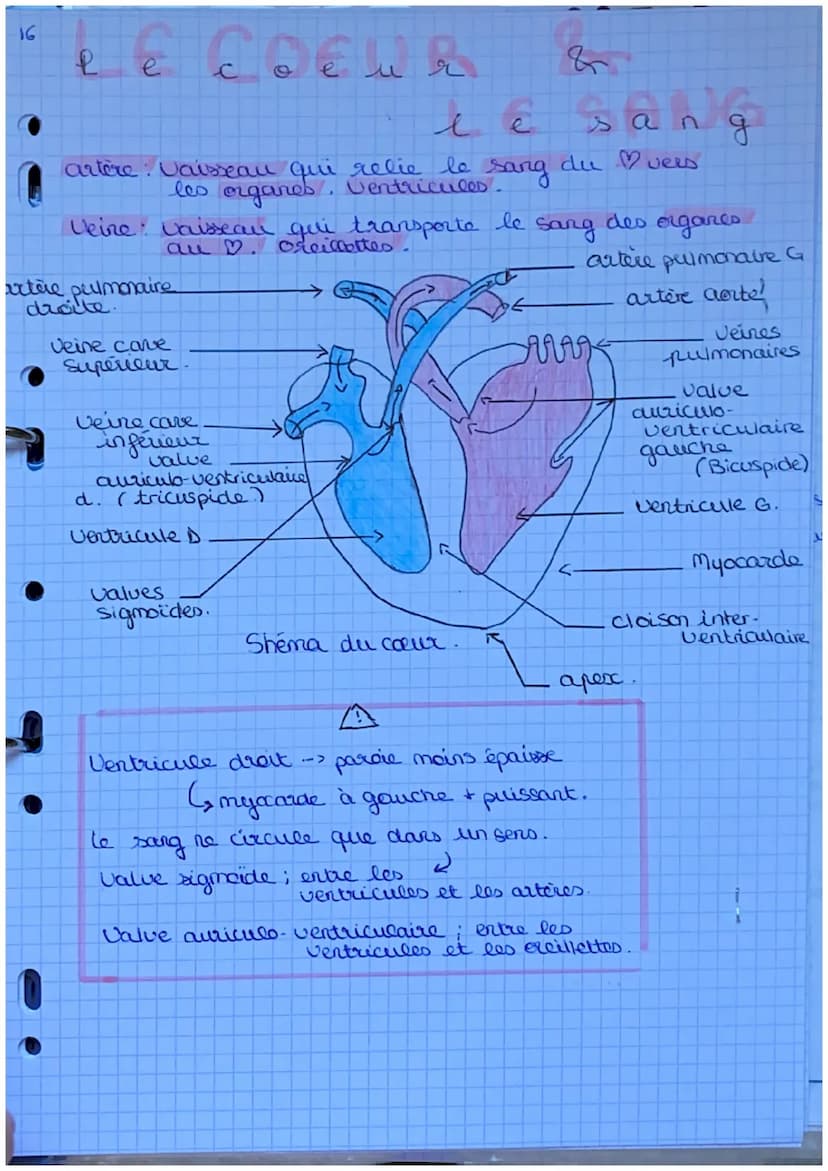 16
LE COEUR &
Le coeur &
LE SANG
le sang
artère : Vaisseau qui relie le sang du ♡ vers
les organes. Ventricules.
Veine : vaisseau qui transporte le sang des organes
au ♡. Oreillettes.
artère pulmonaire G
artère pulmonaire
droite.
artère aorte
Veine cave
supérieur.
Veines
pulmonaires
Veine cave
inférieur
valve
auriculo-
ventriculaire
gauche
(Bicuspide)
valve
auriculo-ventriculaire
d. (tricuspide)
Ventricule G.
Ventricule D
Myocarde
values
sigmoïdes.
cloison inter-
ventriculaire
Shéma du cœur.
apex.
!
Ventricule droit --> paroie moins épaisse
↳ myocarde à gauche + puissant.
le sang ne circule que dans un sens.
Valve sigmoïde ; entre les
ventricules et les artères.
Valve auriculo-ventriculaire ; entre les
ventricules et les oreillettes.